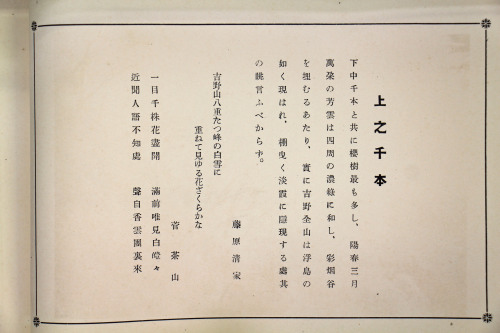 上之千本
下中千本と共に櫻樹最も多し、陽春三月
萬朶の芳雲は四周の濃綠に和し、彩烟谷
を埋むるあたり、實に吉野全山は浮島の
如く現はれ、棚曳く淡霞に隱現する處其
の眺言ふべからず。
藤原清家
吉野山八重たつ峰の白雲に
重ねて見ゆる花ざくらかな
菅茶山
一目千株花盡開 滿前唯見白皚々
近聞人語不知處 聲自香雲團裏來